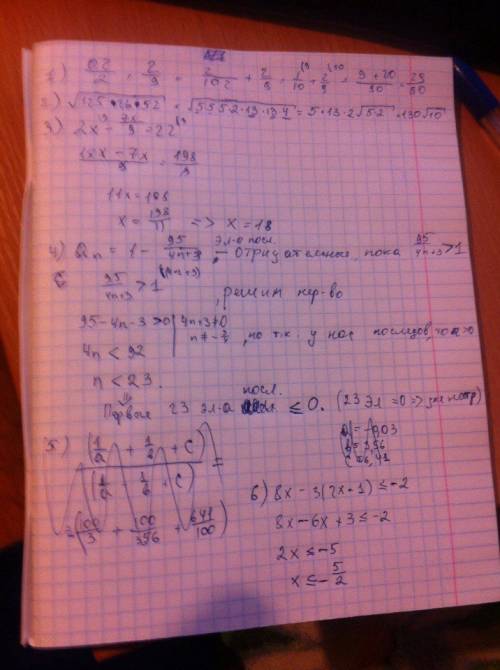 1) 0,2/2 + 2/9 = 2/10·2 + 2/9 = 1/10 + 2/9 = 9+20/90 = 29/90
2) √125·26·52 = √5·5·5·2·13·13·4 = 5·13·2√5·2 = 130√10
3) 2x - 7x/9 = 22
18x - 7x/9 = 198/9
11x = 198
x = 198/11 => x = 18
4) Qn = 1 - 95/4n+3, эл-а посл. - отрицательные, пока 95/4n+3 > 1
95/4n+3 > 1 , решим нер-во
95-4n-3 >0 | 4n+3≠0
n ≠ -3/4 , но т.к. у нас последов, то n>0
4n < 92
n < 23.
Первые 23 эл-а посл. ≤ 0. (23 эл =0 =>
5) (1/a + 1/b + c)
(1/a - 1/b + c) =
= (100/3 + 100/356 + 641/100)
b = 3,56
c = 6,41
6) 8x - 3(2x+1) ≤ -2
8x - 6x + 3 ≤ -2
2x ≤ -5
x ≤ - 5/2